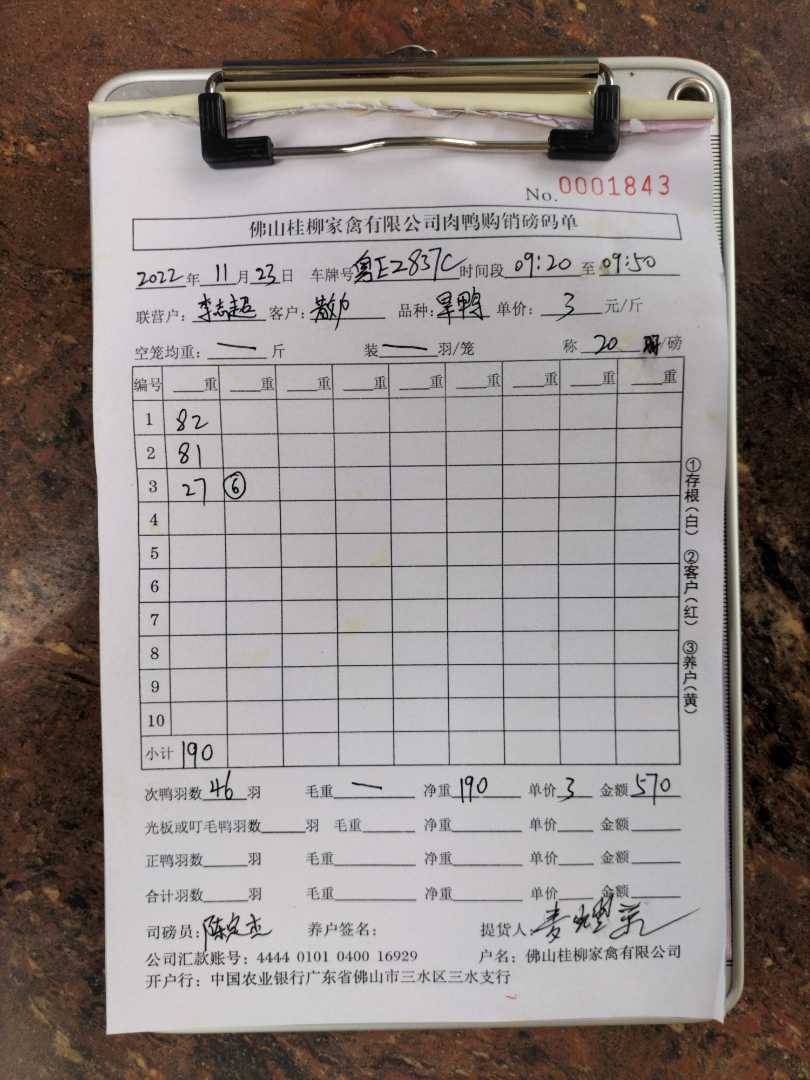 No. 0001843
佛山桂柳家禽有限公司肉鸭购销磅码单
2022年11月23日 车牌号粤E2837C时间段09:20至09:50
联营户:李志超 客户:散户 品种:旱鸭 单价:3元/斤
空笼均重:一斤 装一羽/笼 称20羽/磅
编号 重 重 重 重 重 重 重 重 重
1 82
2 81
3 27 ⑥
4
5
6
7
8
9
10
小计 190
次鸭羽数46羽 毛重一 净重190 单价3 金额570
光板或叮毛鸭羽数 羽 毛重 净重 单价 金额
正鸭羽数 羽 毛重 净重 单价 金额
合计羽数 羽 毛重 净重 单价 金额
司磅员:陈定杰 养户签名: 提货人:
公司汇款账号:4444 0101 0400 16929 户名:佛山桂柳家禽有限公司
开户行:中国农业银行广东省佛山市三水区三水支行
①存根(白) ②客户(红) ③养户(黄)